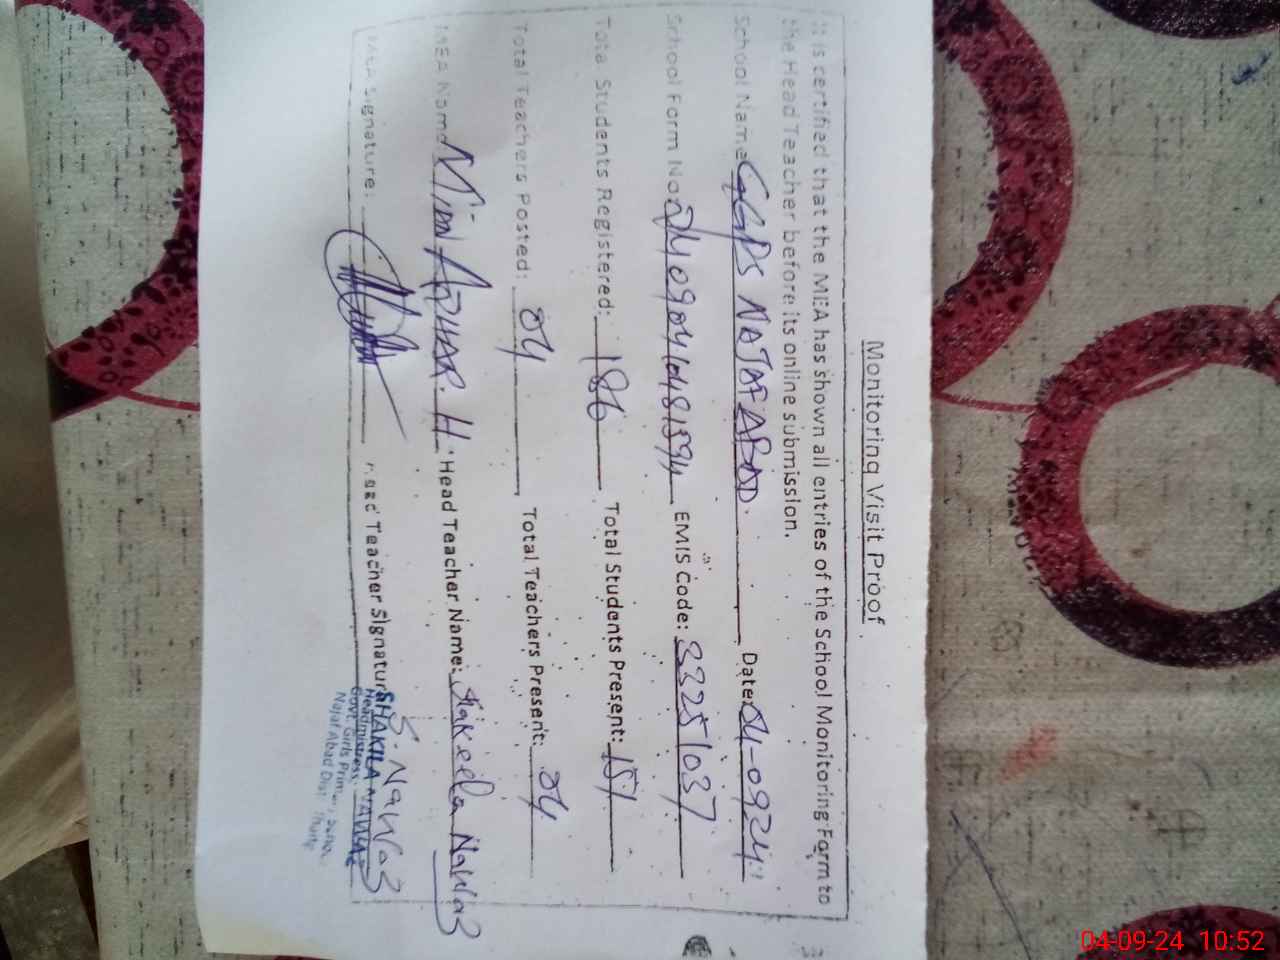 Monitoring Visit Proof
It is certified that the MEA has shown all entries of the School Monitoring Form to
the Head Teacher before its online submission.
School Name GGPS NAJAF ABAD. Date: 04-0924
School Form No. EMIS Code: 33251037
Total Students Registered: 186 Total Students Present: 151
Total Teachers Posted: 04 Total Teachers Present: 04
MEA Name AZHAR. H. Head Teacher Name: Shakeela Nawaz
MEA Signature: Head Teacher Signature S. Nawaz
SHAKILA NAWAZ
Headmistress
Govt. Girls Primary School
Najaf Abad Dist.
04-09-24 10:52